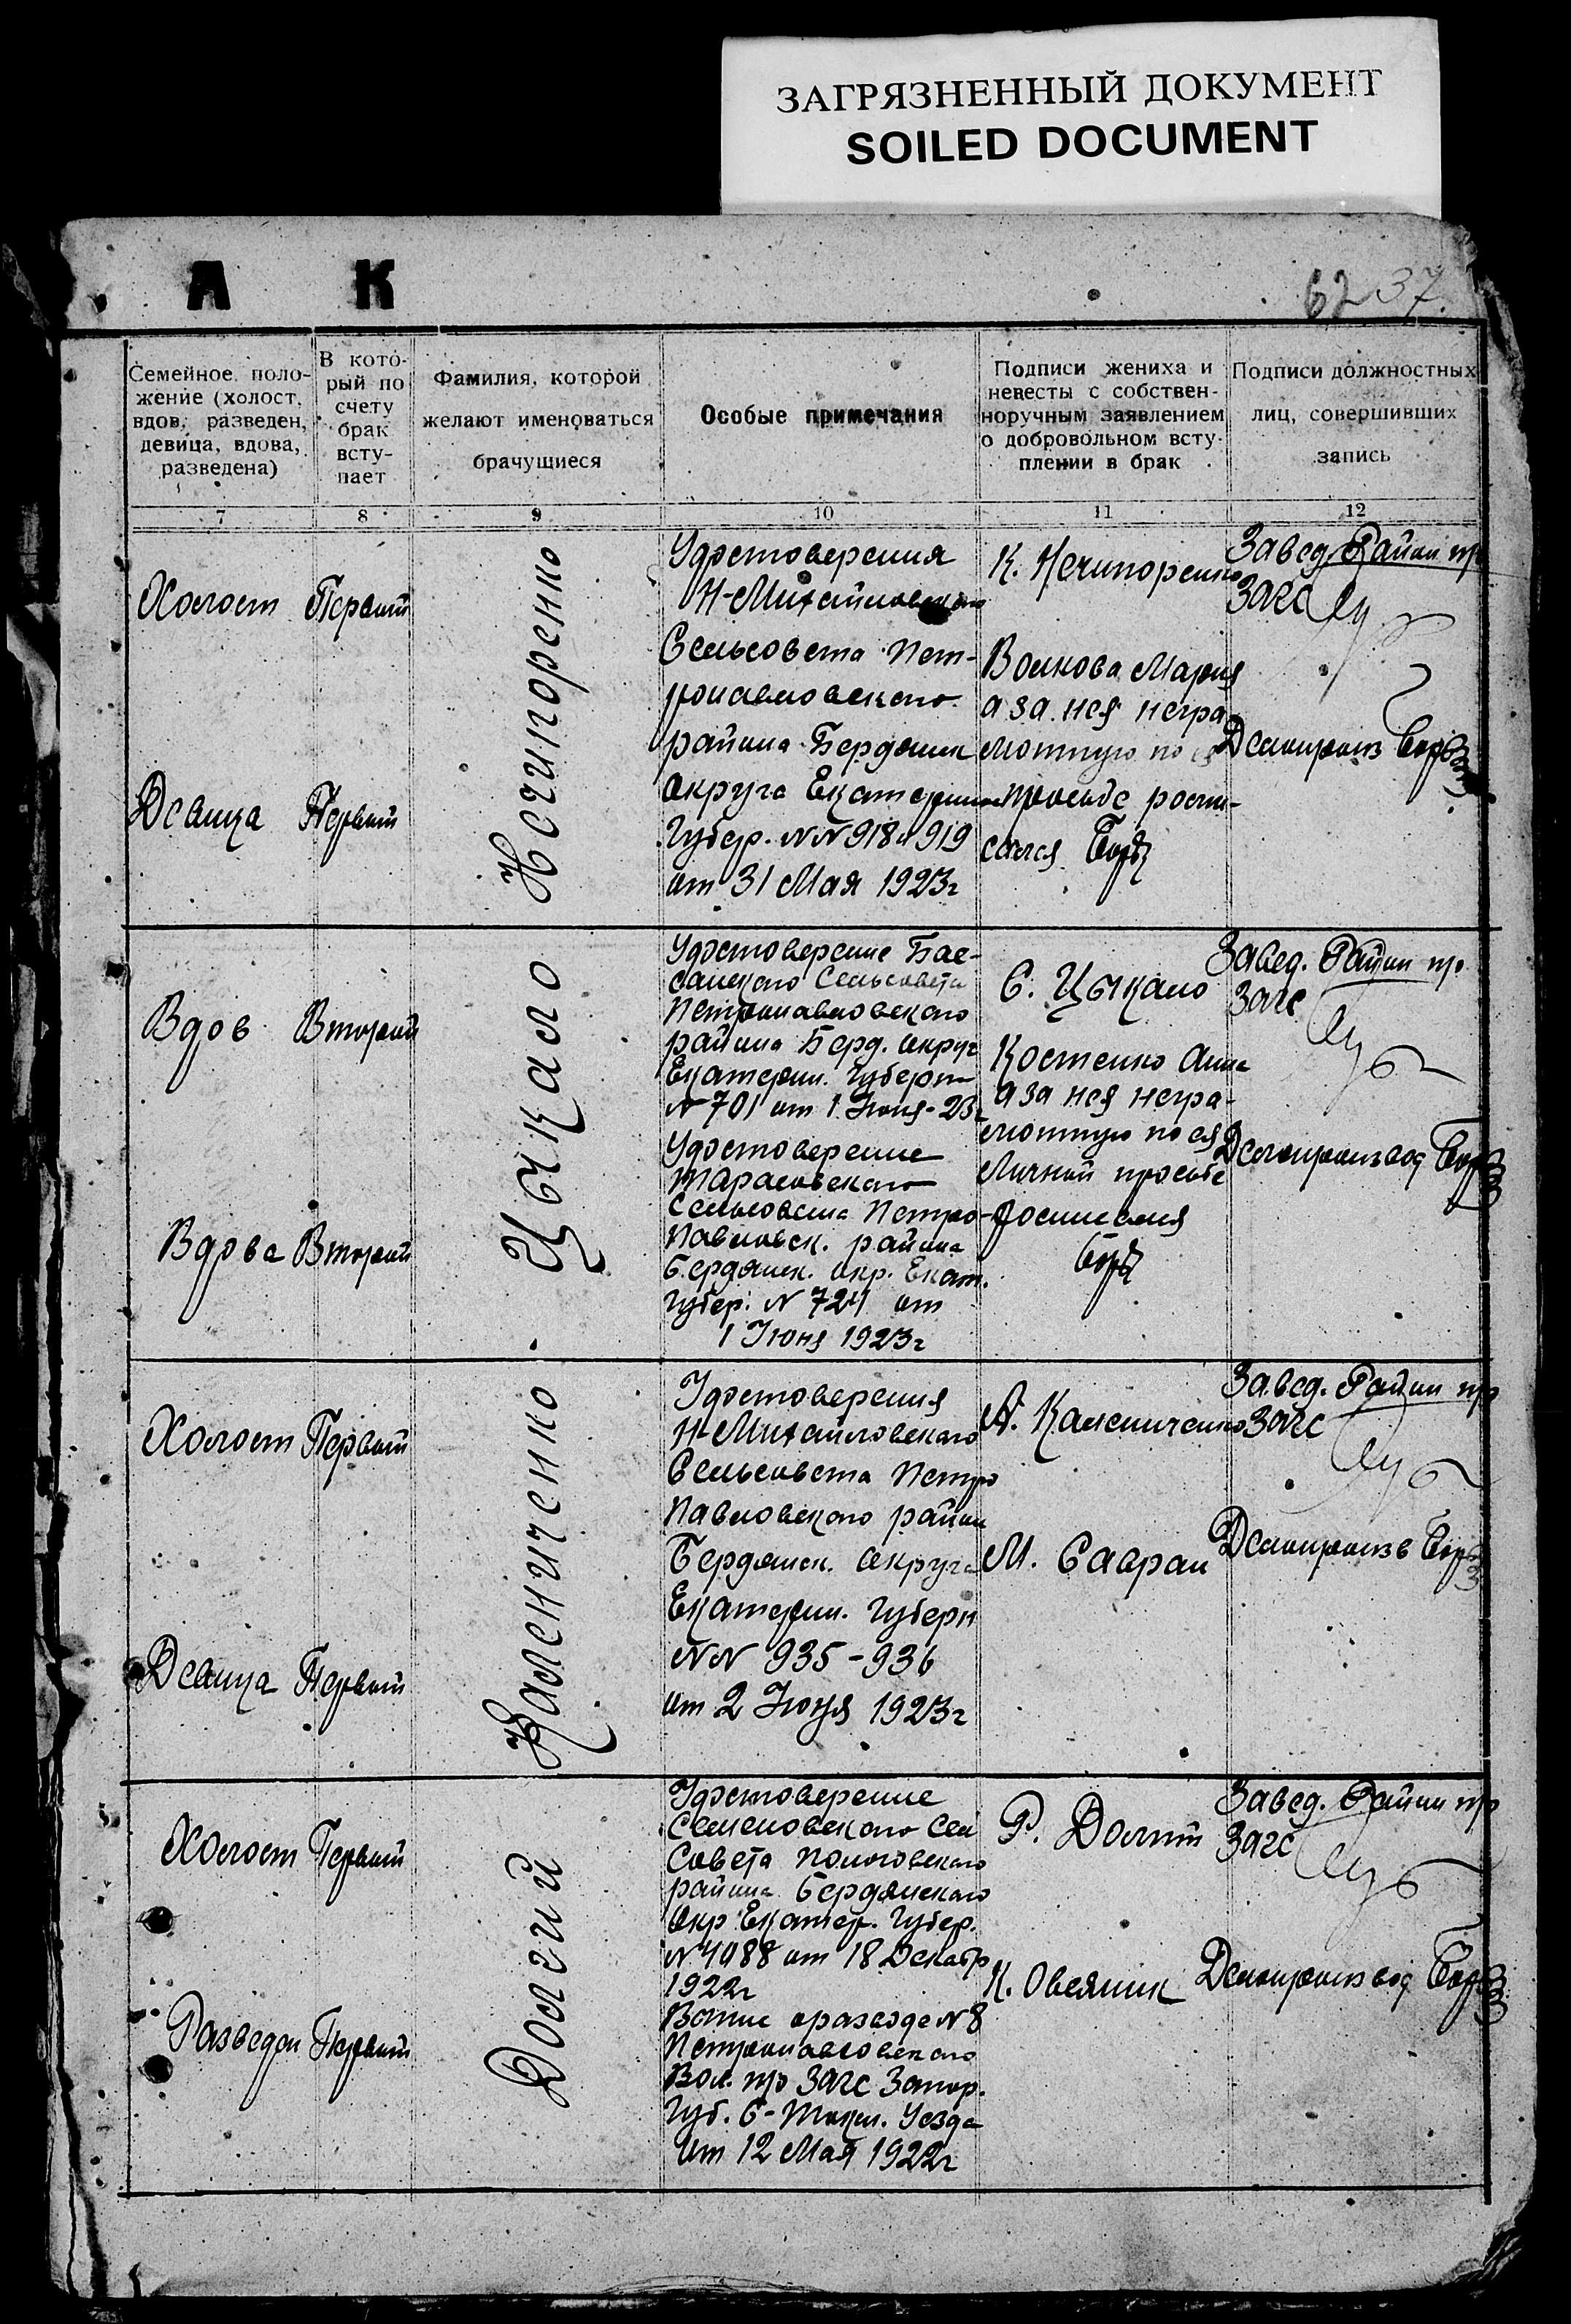 ЗАГРЯЗНЕННЫЙ ДОКУМЕНТ
SOILED DOCUMENT
А К
62 37.
Семейное поло-
жение (холост,
вдов, разведен,
девица, вдова,
разведена)
В кото-
рый по
счету
брак
всту-
пает
Фамилия, которой
желают именоваться
брачущиеся
Особые примечания
Подписи жениха и
невесты с собствен-
норучным заявлением
о добровольном всту-
плении в брак
Подписи должностных
лиц, совершивших
запись
7 8 9 10 11 12
Холост Первый
Девица Первый
Нечипоренко
Удостоверения
Н-Михайловского
Сельсовета Пет-
ропавловского
района Бердянск
округа Екатерин
Губер. NN 918 и 919
от 31 Мая 1923г
К. Нечипоренко
Волкова Мария
а за нея негра-
мотную по
просьбе распи-
сался
Завед. Район п/о
Загс
Делопроизв
Вдов Второй
Вдова Второй
Цыкало
Удостоверение Бас-
санского Сельсовета
Петропавловского
района Берд. округ
Екатерин. Губерн
N 701 от 1 Июня-23г
Удостоверение
Тарасовского
Сельсовета Петро-
Павловск. района
Бердянск. окр. Екат.
Губер. N 724 от
1 Июня 1923г
С. Цыкало
Костенко Анна
а за нея негра-
мотную по ея
личной просьбе
росписался
Завед. Район п/о
Загс
Делопроизвод
Холост Первый
Девица Первый
Калениченко
Удостоверения
Н-Михайловского
Сельсовета Петро
Павловского район
Бердянск. округа
Екатерин. Губерн
NN 935-936
от 2 Июня 1923г
А. Каленичен­ко
М. Савран
Завед. Район п/о
Загс
Делопроизв
Холост Первый
Разведен Первый
Долгий
Удостоверение
Семеновского Сел
Совета Пологовского
района Бердянского
Окр Екатер. Губер.
N 4088 от 18 Декабр
1922г
о разводе N 8
Петропавловского
Вол. п/о Загс Запор.
Губ. Б-Токм. Уезда
от 12 Мая 1922г
Р. Долгий
К. Овсяник
Завед. Район п/о
Загс
Делопроизвод